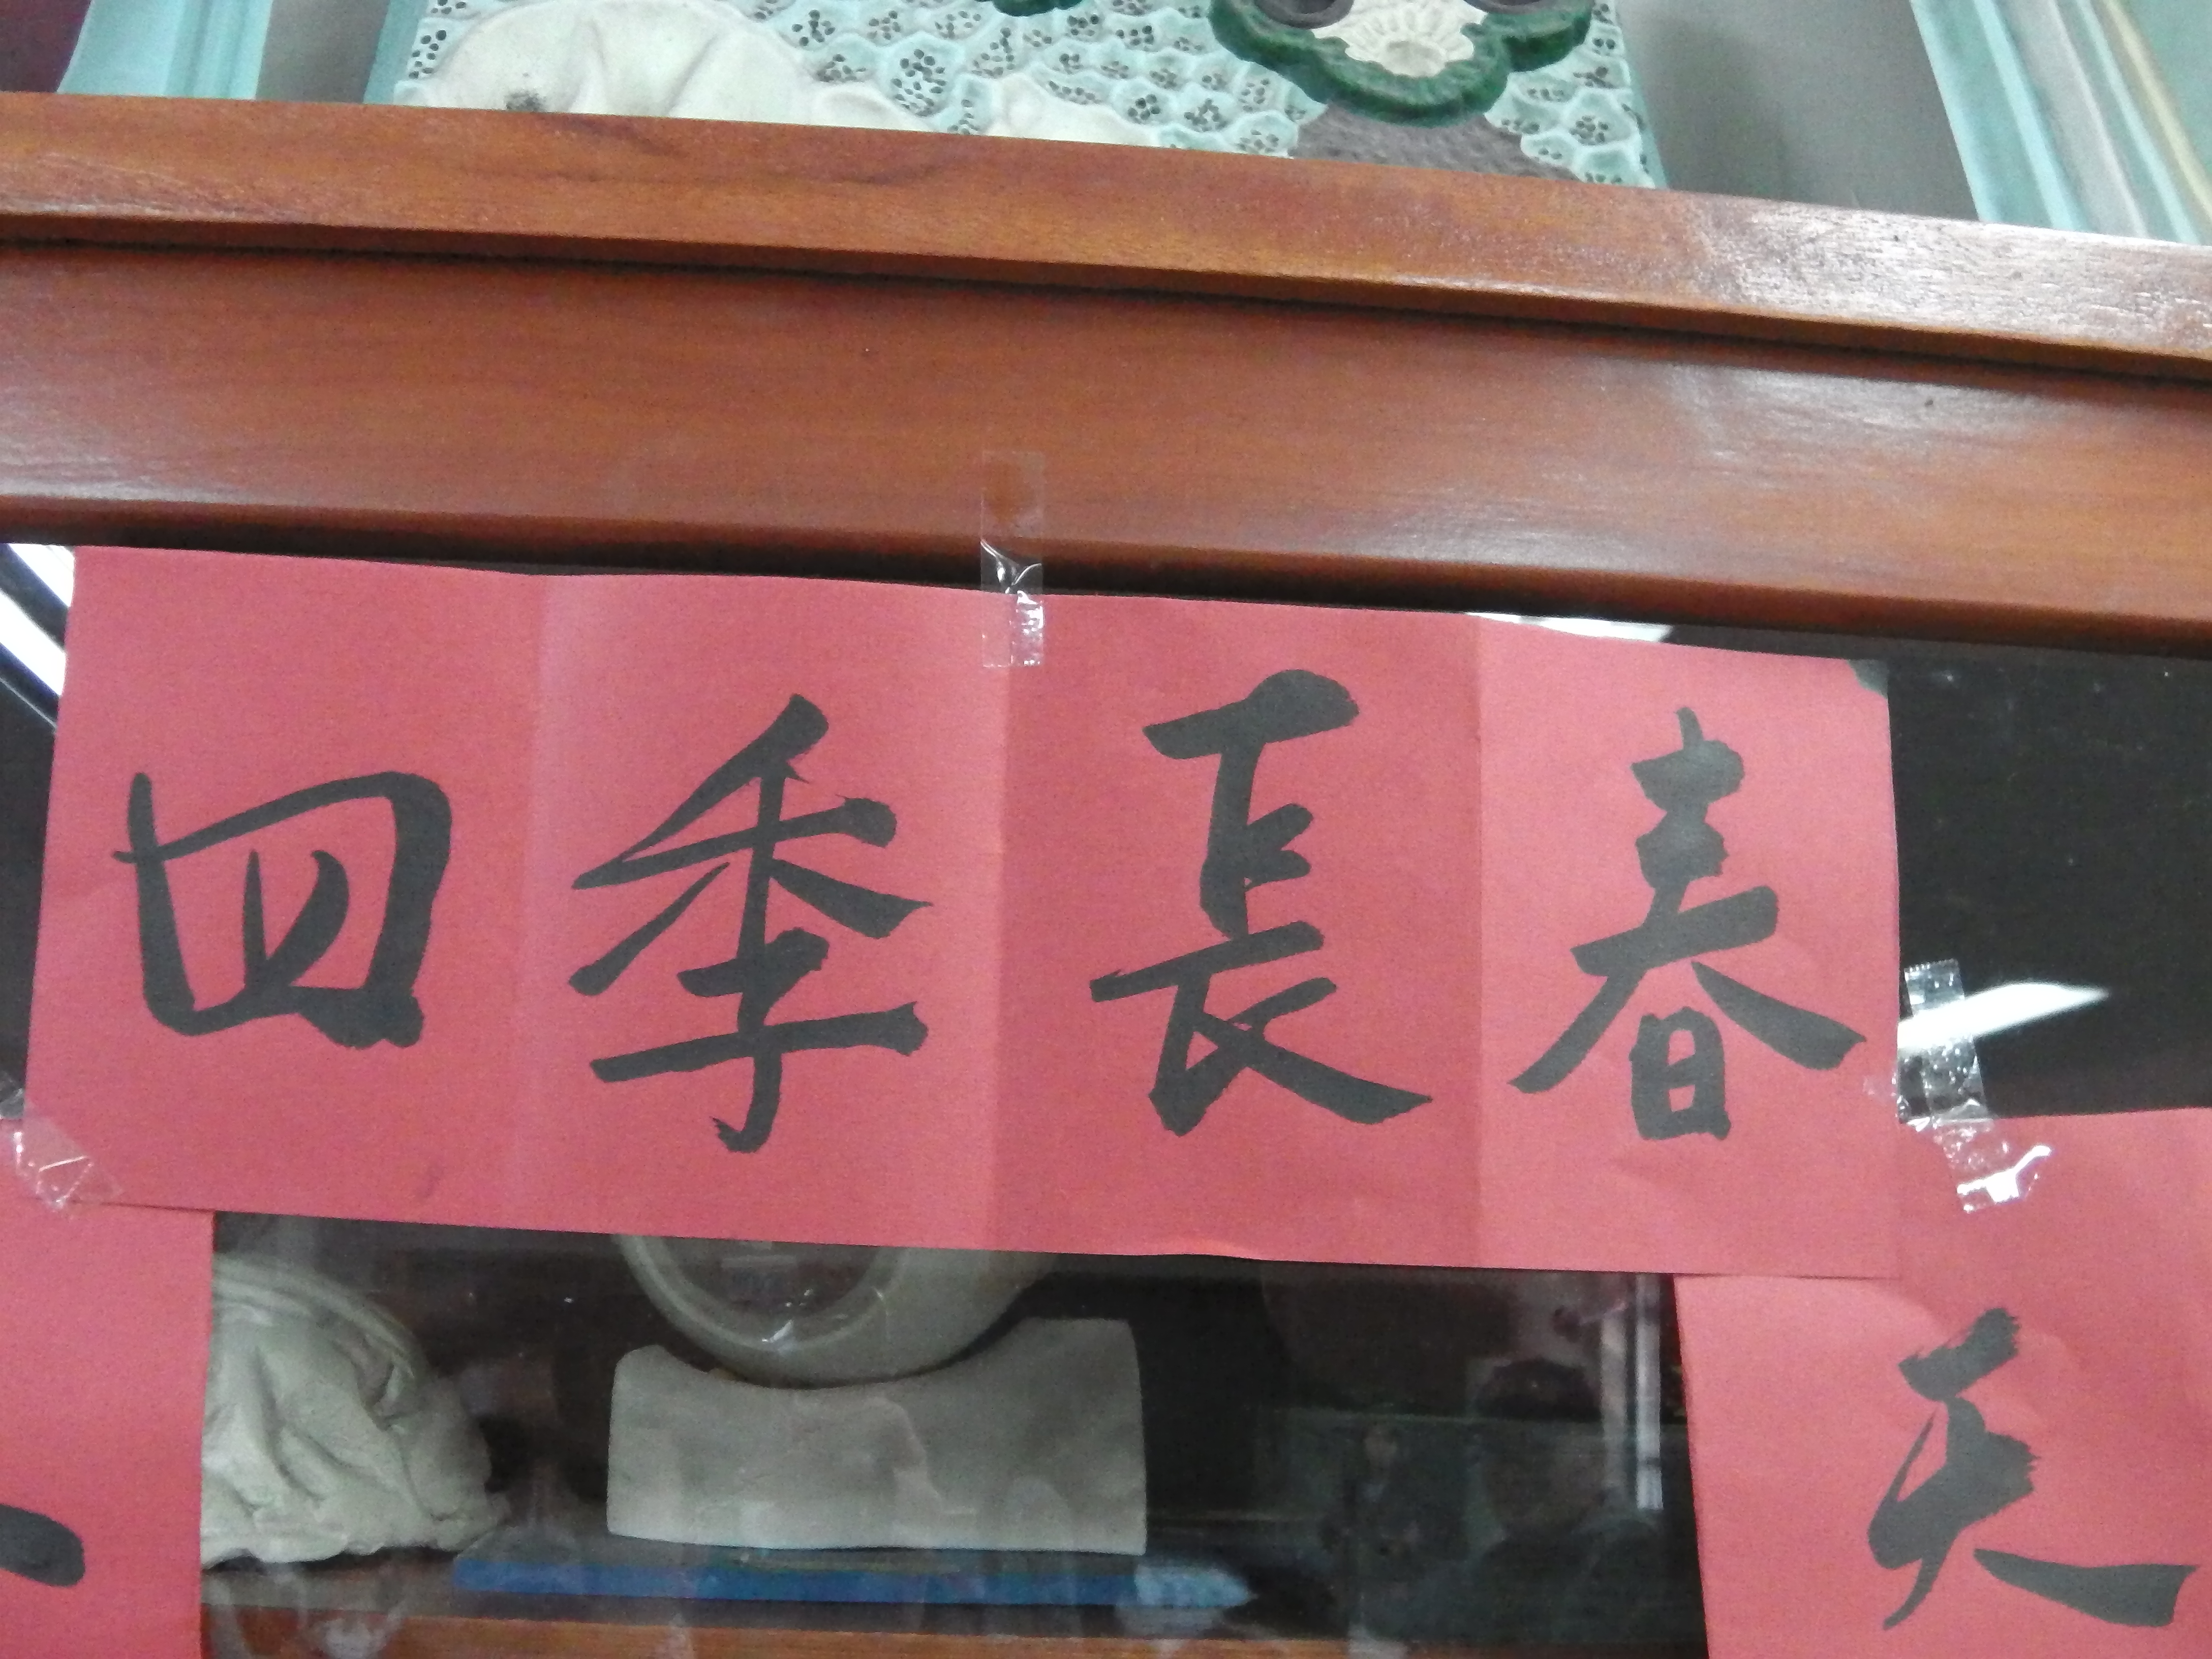 四季長春
天